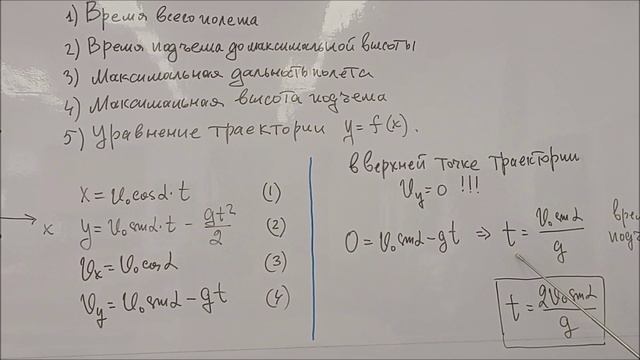 1) Время всего полета
2) Время подъема до максимальной высоты
3) Максимальная дальность полёта
4) Максимальная высота подъема
5) Уравнение траектории y = f(x).
x
x = v₀cosα·t (1)
y = v₀sinα·t - gt²/2 (2)
vₓ = v₀cosα (3)
v_y = v₀sinα - gt (4)
в верхней точке траектории
v_y = 0 !!!
0 = v₀sinα - gt ⇒ t = v₀sinα/g
t = 2v₀sinα/g